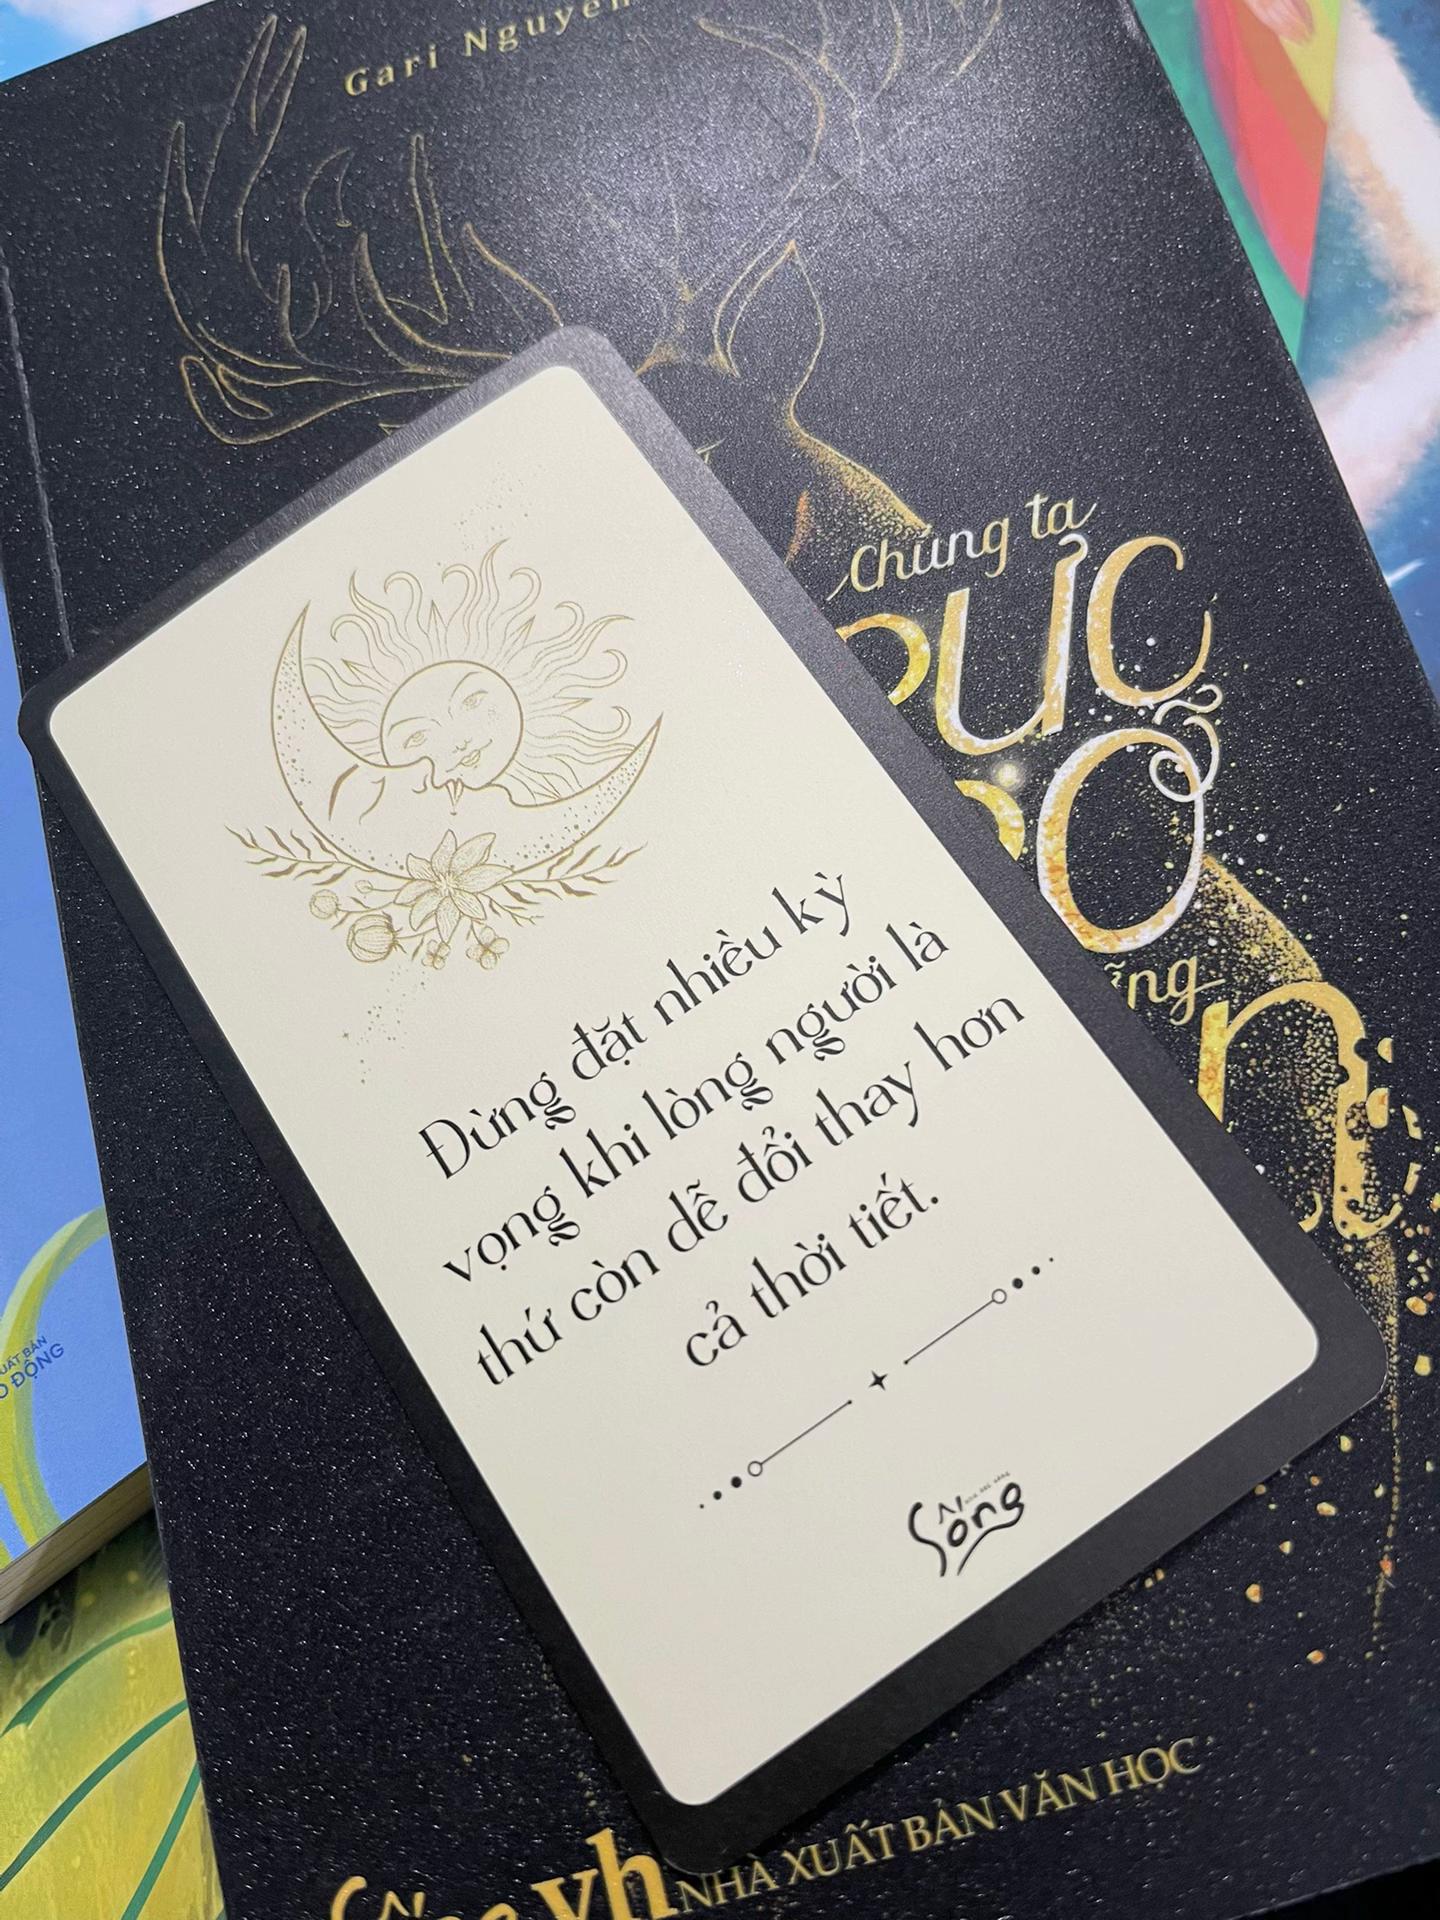 Gari Nguyen
Chúng ta
RỰC
RỠ
n
Đừng đặt nhiều kỳ
vọng khi lòng người là
thứ còn dễ đổi thay hơn
cả thời tiết.
Sông
vh
NHÀ XUẤT BẢN VĂN HỌC
XUẤT BẢN
ĐỘNG